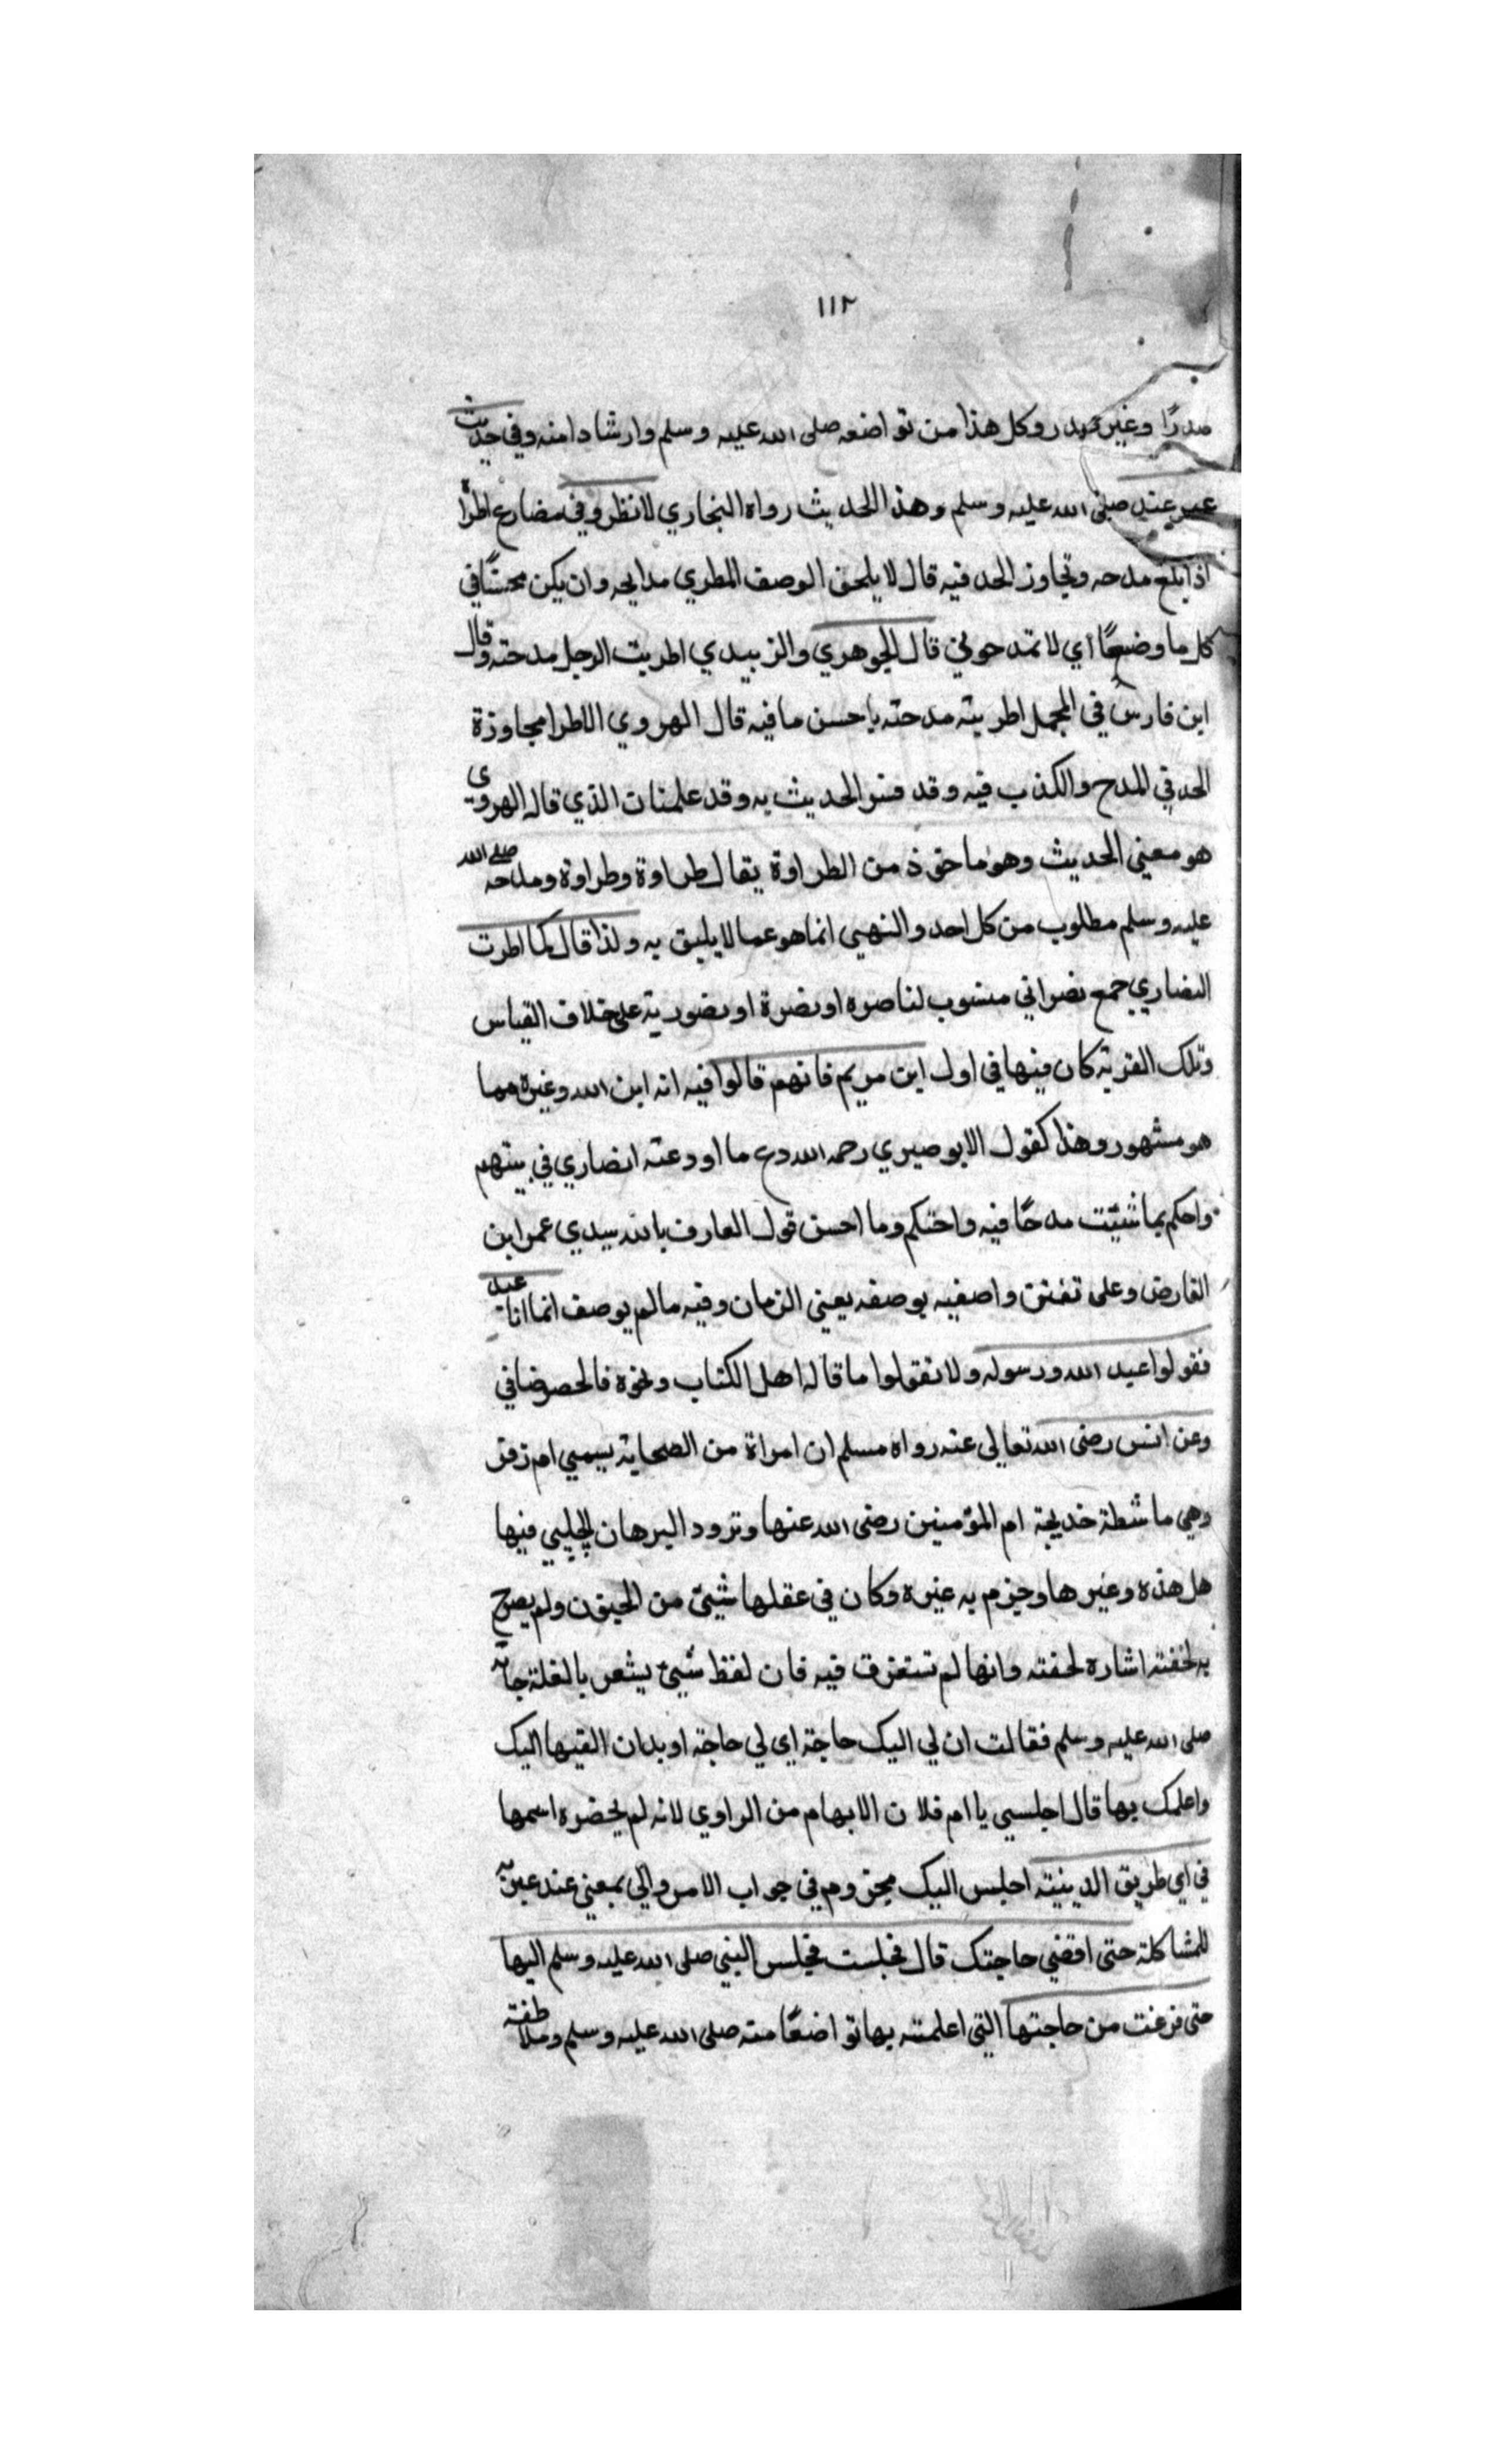 ١١٢
صدرًا وغير صدر وكل هذا من تواضعه صلى الله عليه وسلم وارشادا منه وفي حديث
عمر عنه صلى الله عليه وسلم وهذا الحديث رواه البخاري لا نظروني مضارع اطرا
اذا بلغ مدحه وتجاوز الحد فيه قال لا يلحق الوصف المطري مدايحه وان يكن محسنًا في
كل ما وضعًا اي لا تمدحوني قال الجوهري والزبيدي اطريت الرجل مدحته وقال
ابن فارس في المجمل اطريته مدحته باحسن ما فيه قال الهروي الاطرا مجاوزة
الحد في المدح والكذب فيه وقد فسر الحديث به وقد علمت ان الذي قاله الهروي
هو معني الحديث وهو ماخوذ من الطراوة يقال طراوة وطراوة ومدحه صلى الله
عليه وسلم مطلوب من كل احد والنهي انما هو عما لا يليق به ولذا قال كما اطرت
النصاري جمع نصراني منسوب لناصره او نصرة او نصورية على خلاف القياس
وتلك القرية كان فيها في اول ابن مريم فانهم قالوا فيه انه ابن الله وغيره مما
هو مشهور وهذا كقول الابوصيري رحمه الله دع ما اودعته انصاري في بيتهم
واحكم بما شئت مدحًا فيه واحتكم وما احسن قول العارف بالله سيدي عمر ابن
الفارض وعلى تفنن واصفيه بوصفه يفني الزمان وفيه ما لم يوصف انما انا عبد
فقولوا عبد الله ورسوله ولا تقولوا ما قاله اهل الكتاب ونحوه فالحصر ضافي
وعن انس رضى الله تعالى عنه رواه مسلم ان امراة من الصحابة يسمي ام زفر
وهي ماشطة خديجة ام المؤمنين رضى الله عنها وتردد البرهان الحلبي فيها
هل هذه وغيرها وجزم به غيره وكان في عقلها شيئ من الجنون ولم يصرح
به لخفته اشاره لخفته وانها لم تستغرق فيه فان لفظ شيئ يشعر بالقلة جاته
صلى الله عليه وسلم فقالت ان لي اليك حاجة اى لي حاجة اوبدان القيها اليك
واعلمك بها قال اجلسي يا ام فلان الابهام من الراوي لانه لم يحضره اسمها
في اي طريق المدينة اجلس اليك مجزوم في جواب الامر والي بمعني عند عبر به
للمشاكلة حتى اقضي حاجتك قال فجلست فجلس النبي صلى الله عليه وسلم اليها
حتى فرغت من حاجتها التي اعلمته بها تواضعًا منه صلى الله عليه وسلم وملاطفة